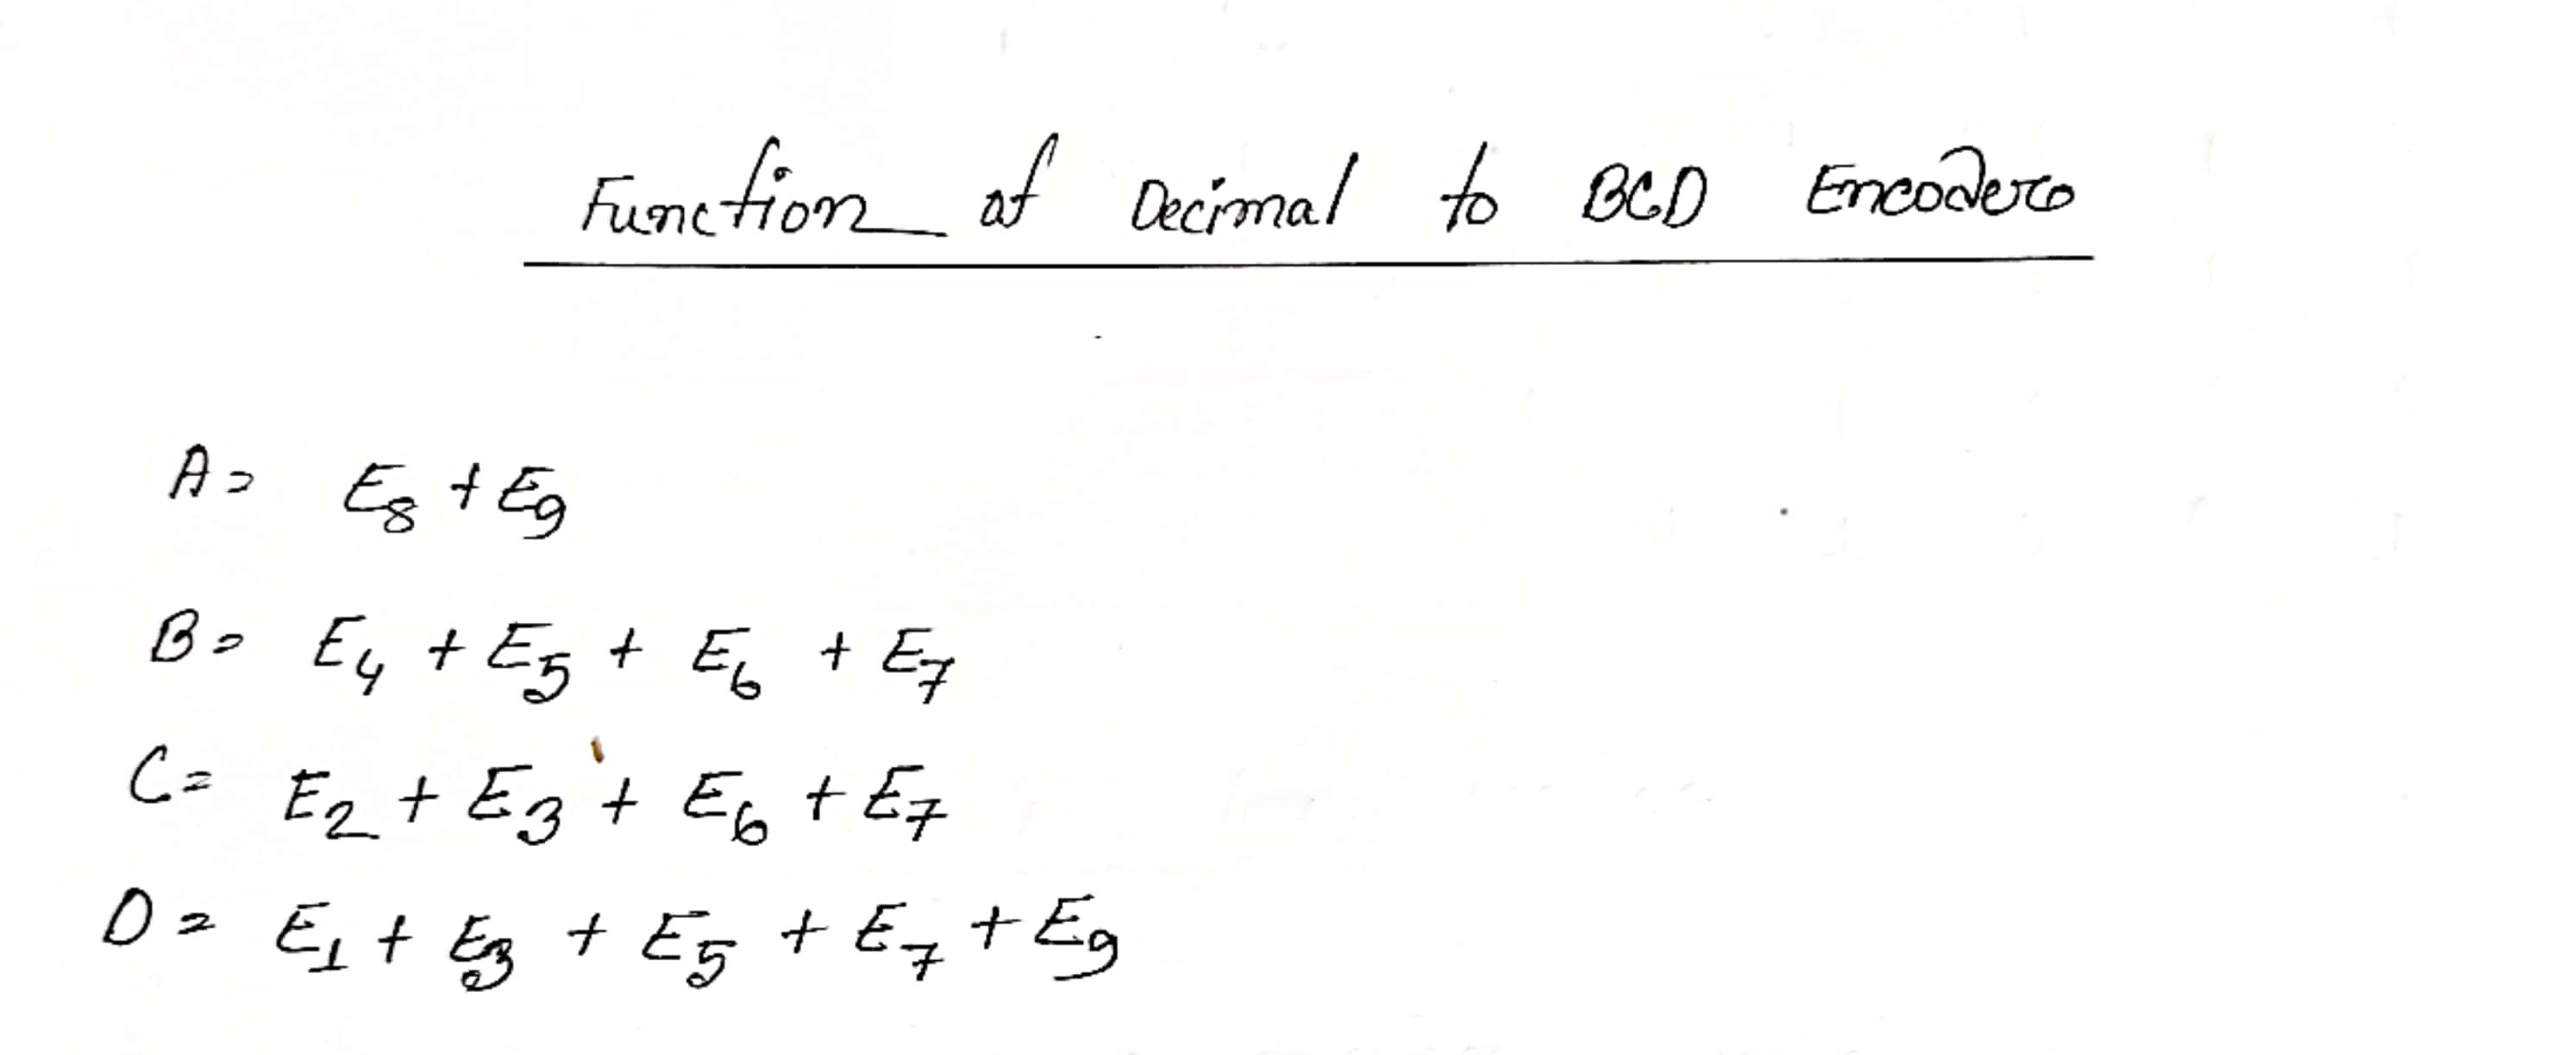 Function of Decimal to BCD Encoder
A = E₈ + E₉
B = E₄ + E₅ + E₆ + E₇
C = E₂ + E₃ + E₆ + E₇
D = E₁ + E₃ + E₅ + E₇ + E₉